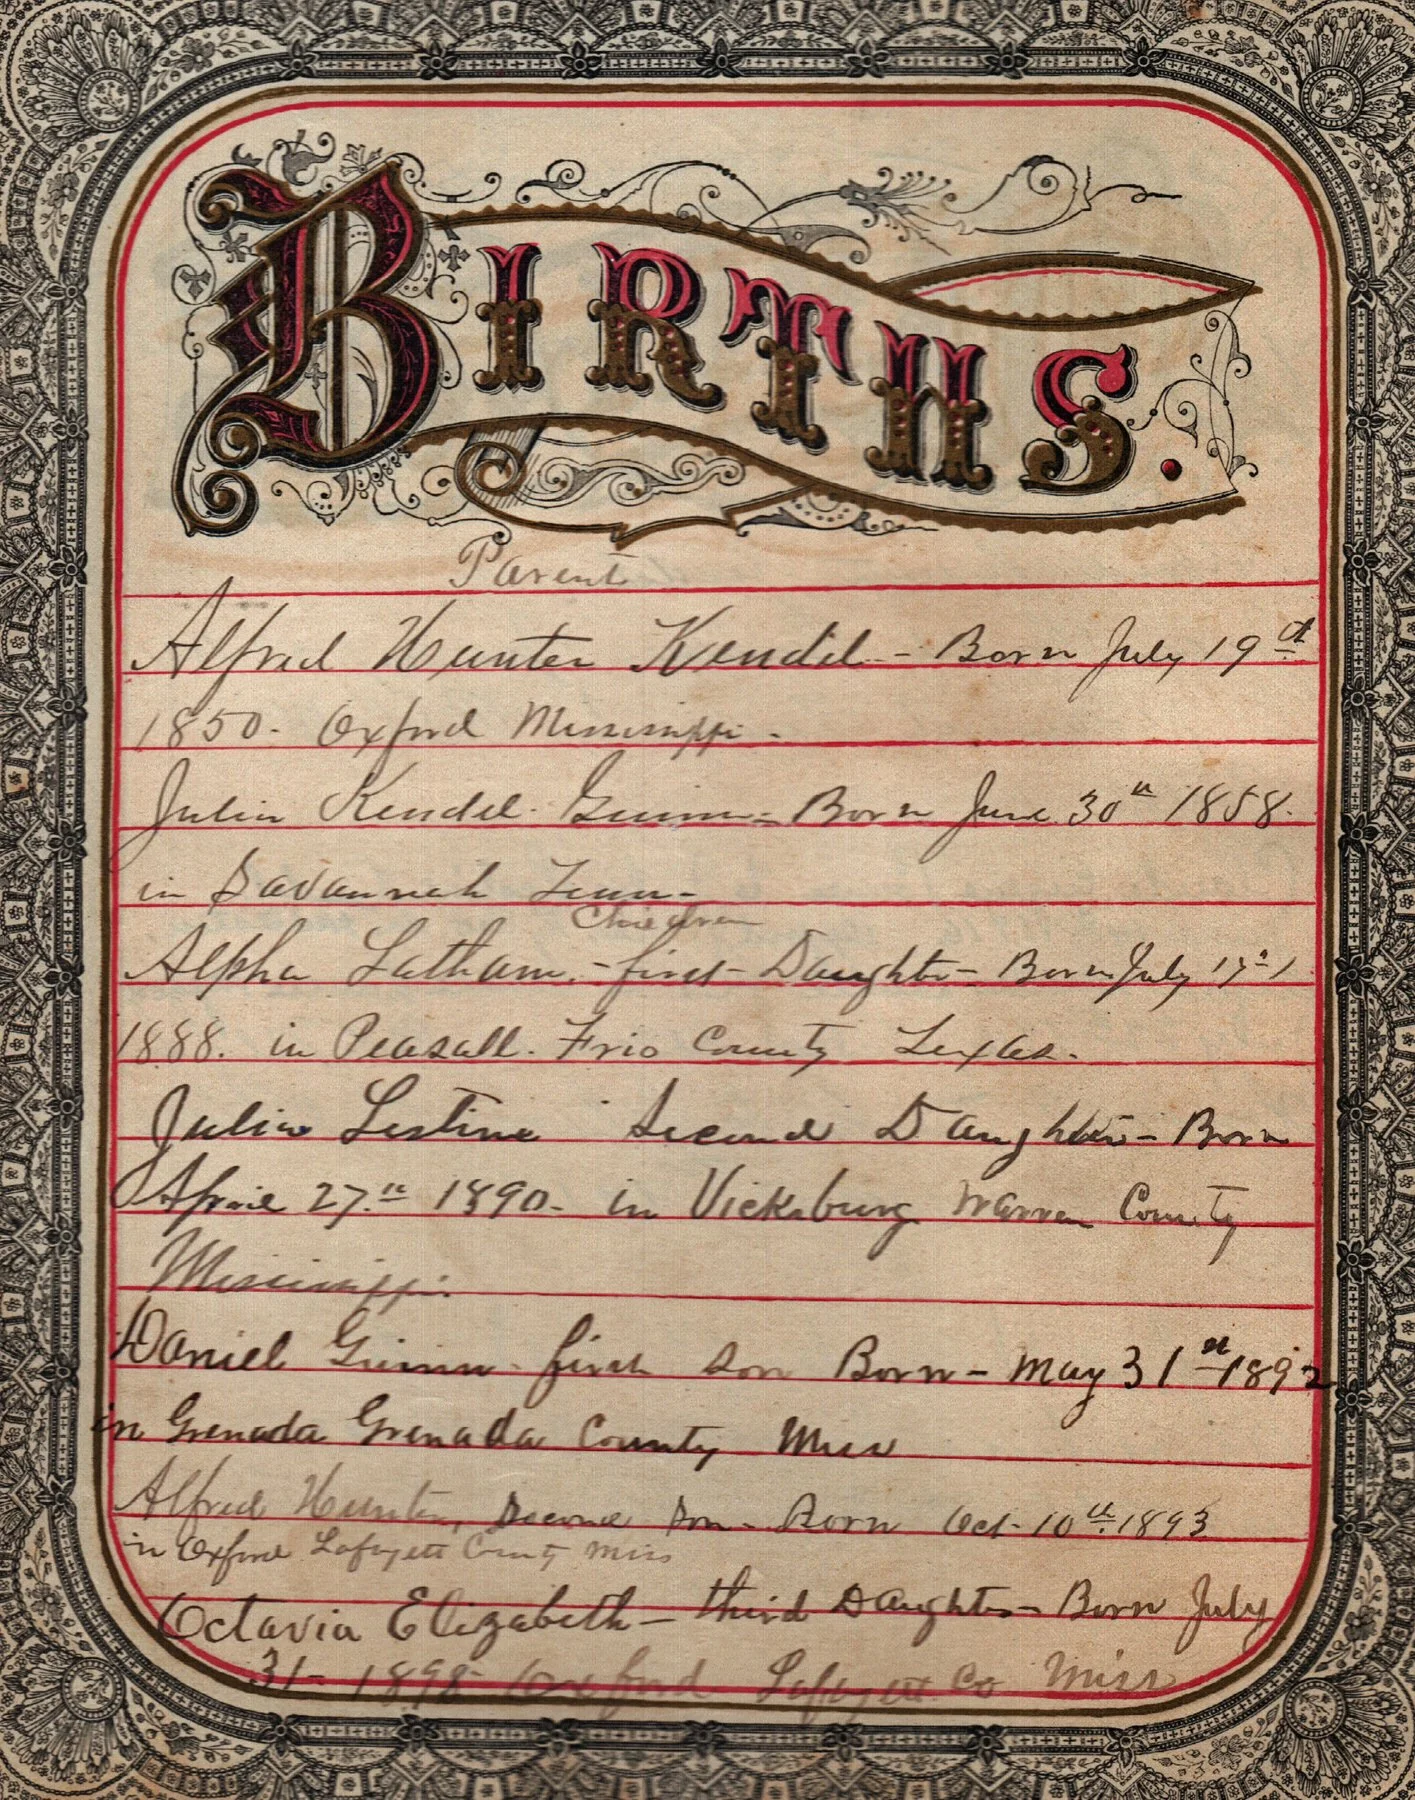 BIRTHS.
Parent
Alfred Hunter Kendel - Born July 19th
1850. Oxford Mississippi -
Julia Kendel Guinn - Born June 30th 1858.
in Savannah Tenn -
Children
Alpha Latham, - first - Daughter - Born July
1888. in Peasall. Frio County Texas.
Julia Lestine Second Daughter - Born
April 27th 1890 - in Vicksburg Warren County
Mississippi.
Daniel Guinn - first son Born - May 31st 1892
in Grenada Grenada County Miss
Alfred Hunter, Second Son - Born Oct - 10th 1893
in Oxford Lafayett County Miss
Octavia Elizabeth - third Daughter - Born July
31 - 1898 - Oxford Lafayett Co Miss